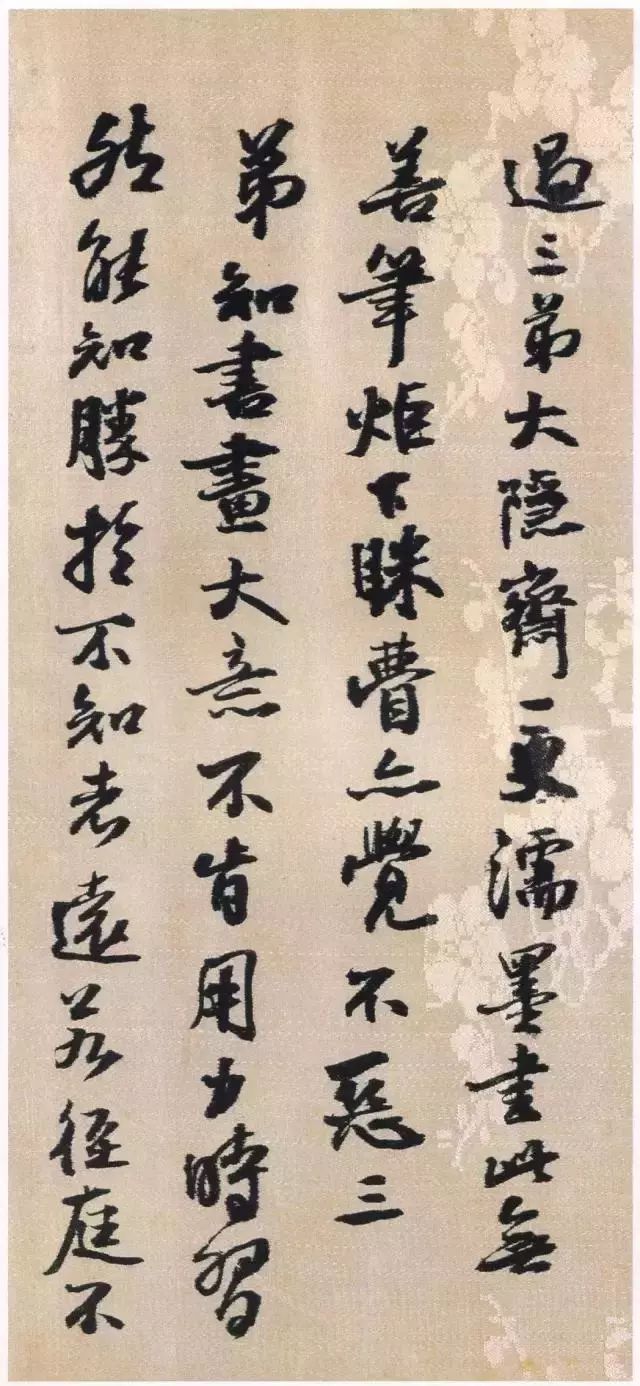 過三弟大隱齋一更濡墨書此無
善筆炬下眯瞢亦覺不惡三
弟知書畫大意不肯用力時習
然能知勝於不知者遠若徑庭不